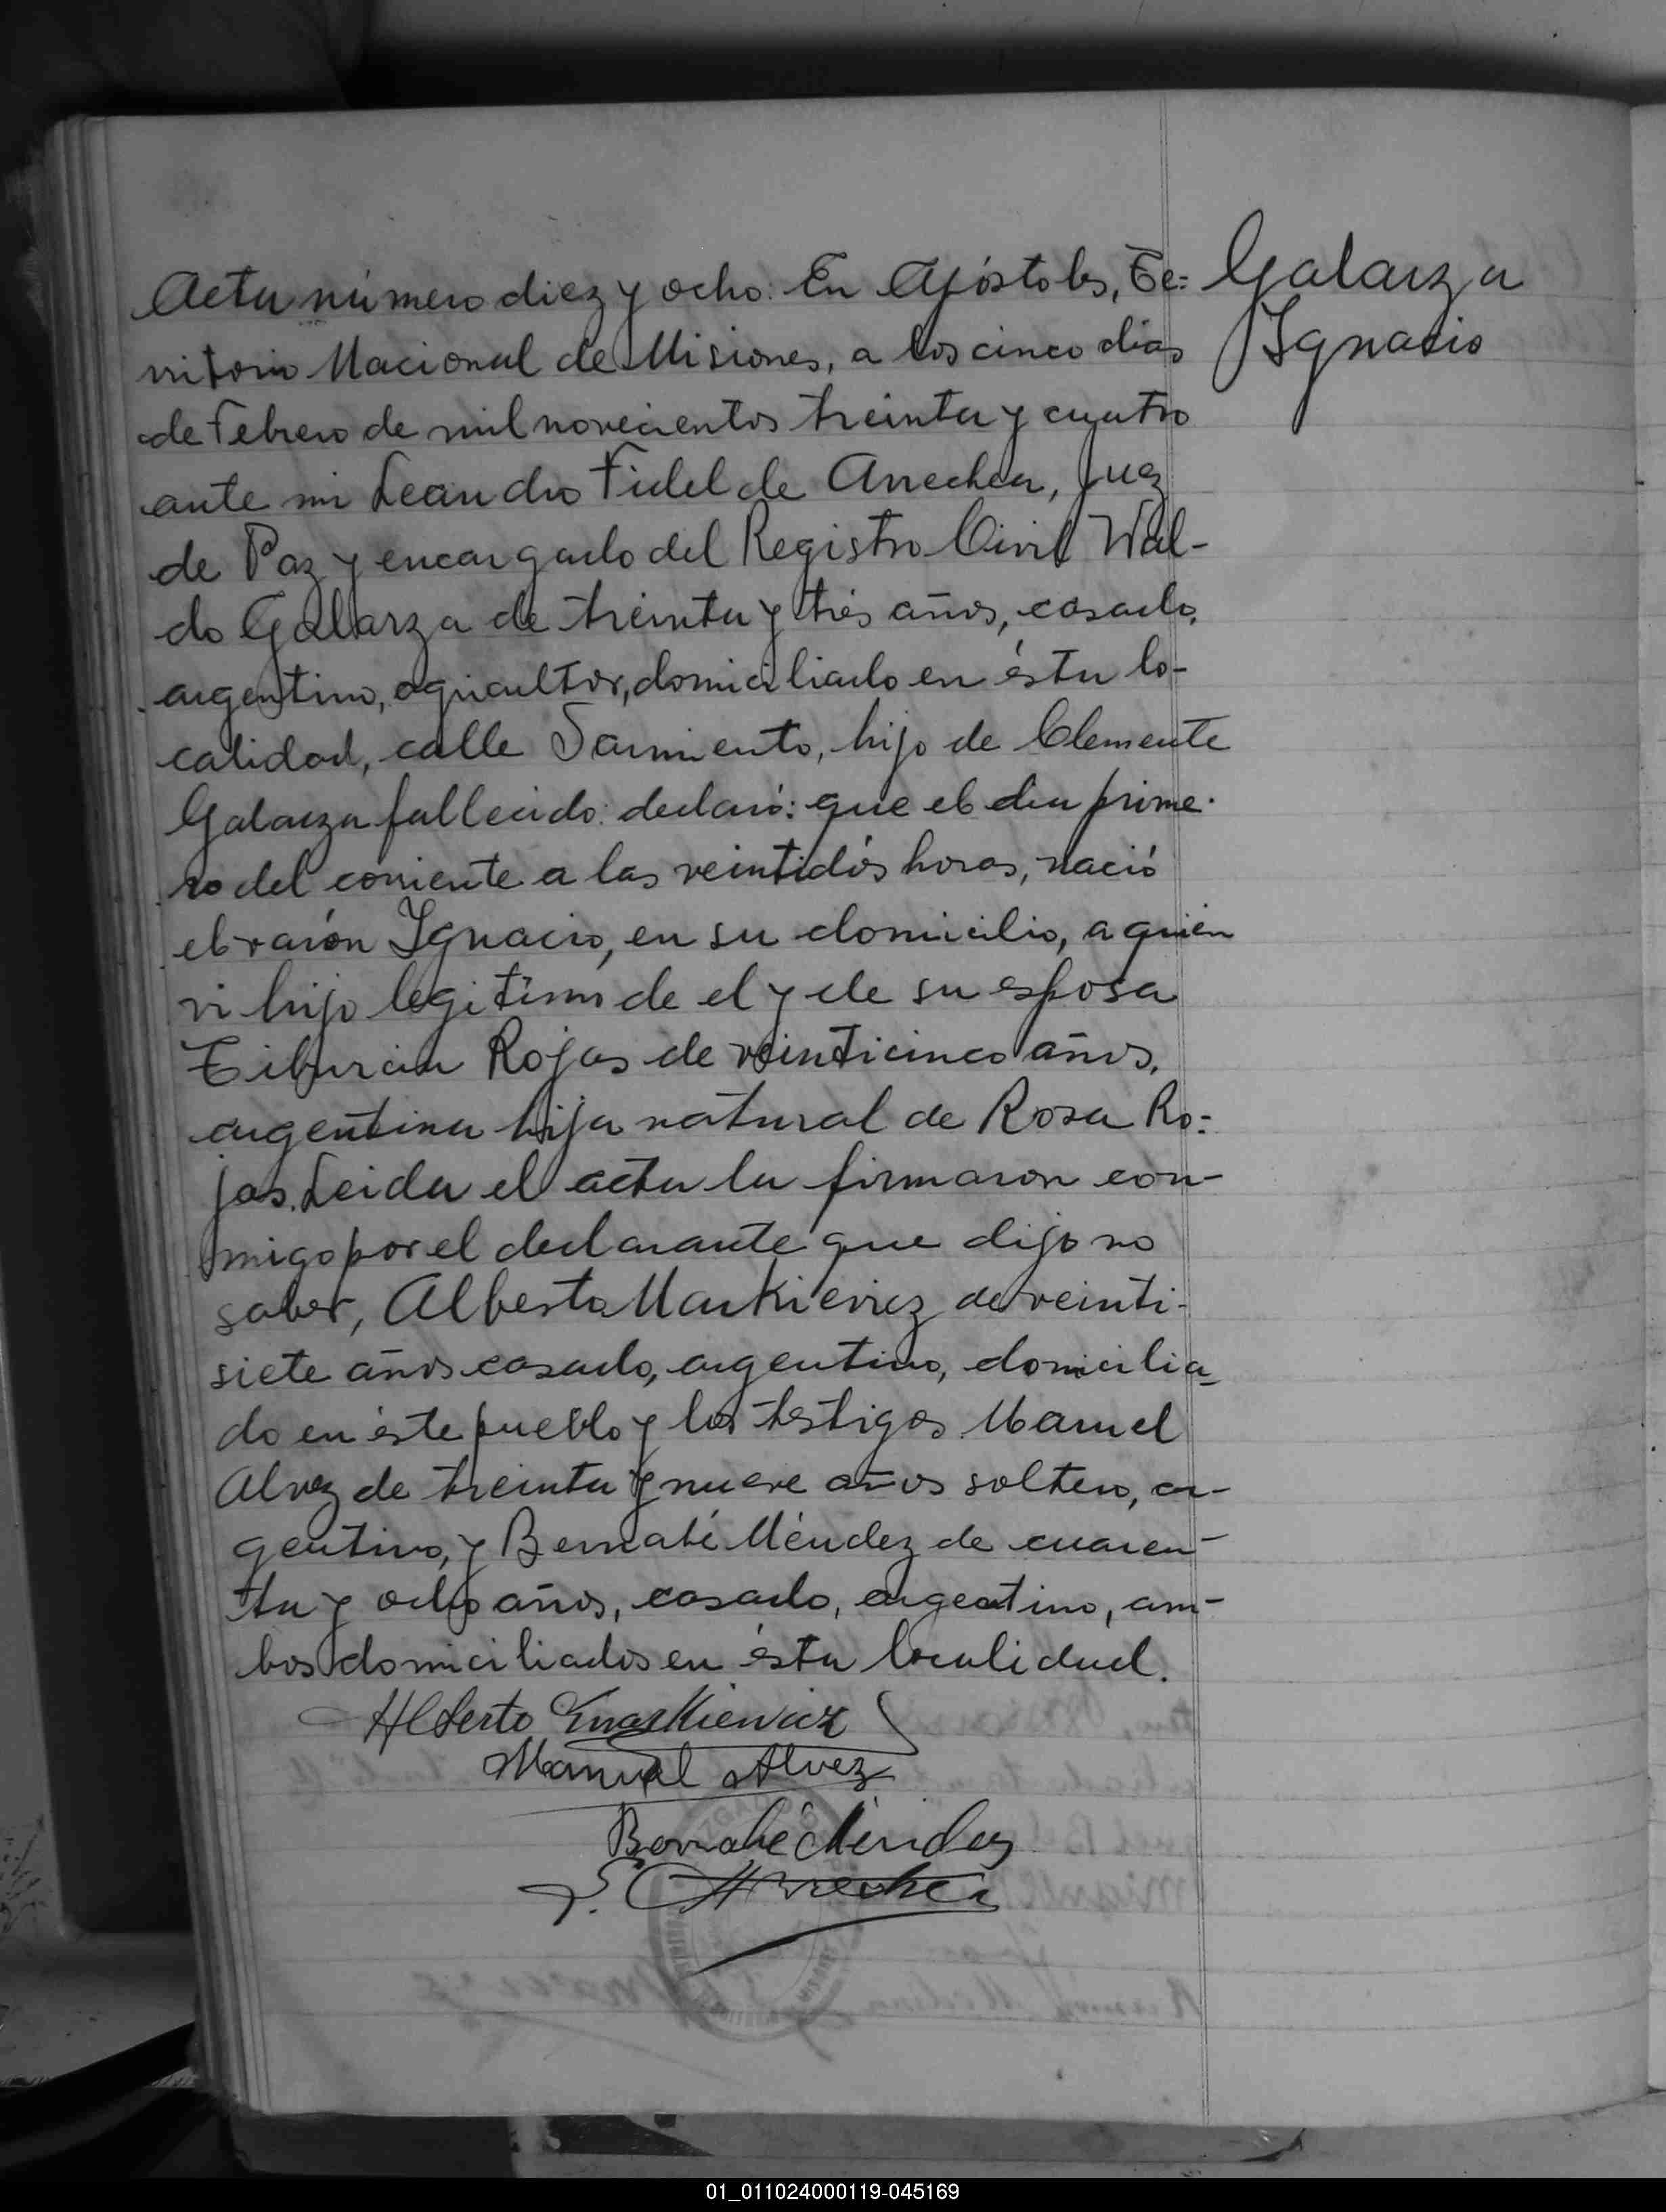 Acta número diez y ocho: En Apóstoles, Te=
rritorio Nacional de Misiones, a los cinco dias
de Febrero de mil novecientos treinta y cuatro
ante mi Leandro Fidel de Arrechea, Juez
de Paz y encargado del Registro Civil Wal-
do Galarza de treinta y trés años, casado,
argentino, agricultor, domiciliado en ésta lo-
calidad, calle Sarmiento, hijo de Clemente
Galarza fallecido: declaró: que el dia prime-
ro del corriente a las veintidós horas, nació
el varón Ignacio, en su domicilio, a quien
vi hijo legitimo de el y de su esposa
Tiburcia Rojas de veinticinco años,
argentina hija natural de Rosa Ro=
jas. Leida el acta la firmaron con-
migo por el declarante que dijo no
saber, Alberto Markievicz de veinti-
siete años casado, argentino, domicilia-
do en éste pueblo y los testigos Manuel
Alvez de treinta y nueve años soltero, ar-
gentino, y Bernabé Méndez de cuaren-
ta y ocho años, casado, argentino, am-
bos domiciliados en ésta localidad.
Galarza
Ignacio
Alberto
Manuel Alvez
Bernabé Méndez
Arrechea
01_011024000119-045169